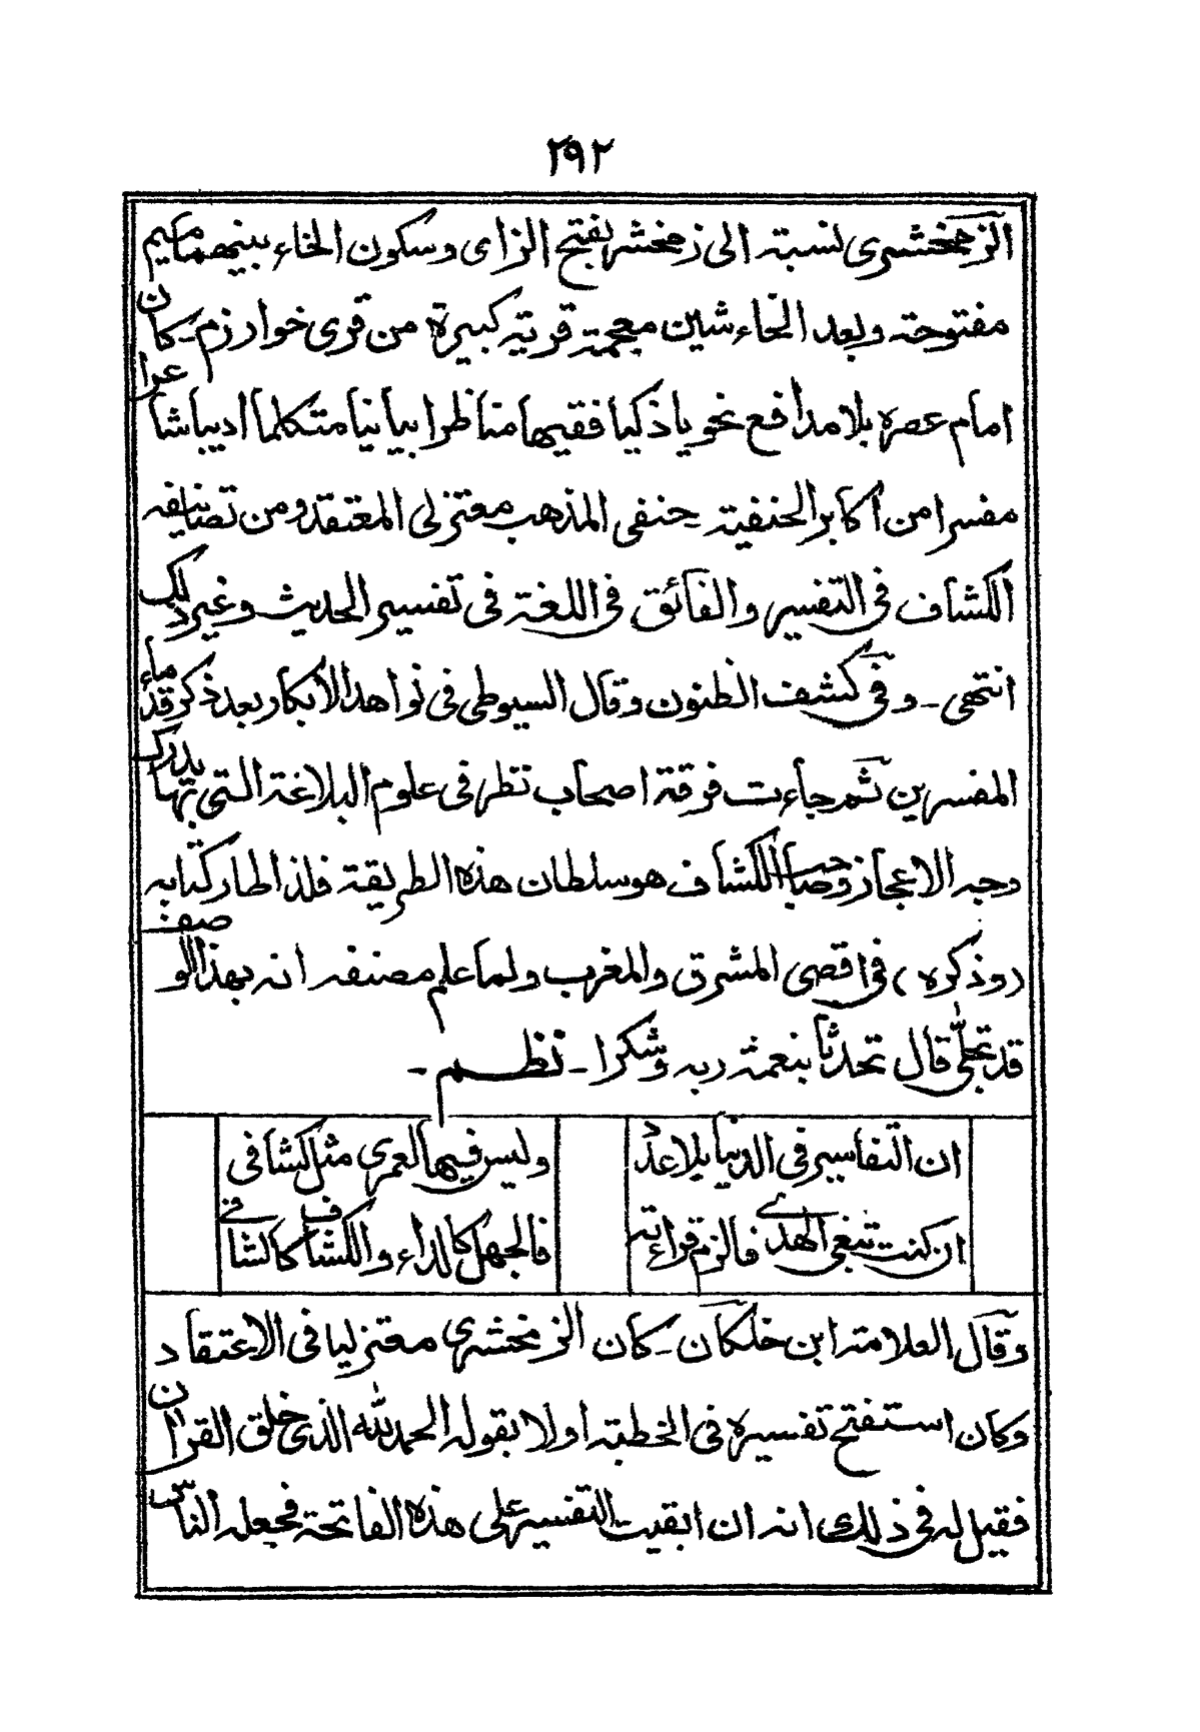 ٢٩٢
الزمخشری نسبتہ الی زمخشر بفتح الزای وسکون الخاء بینھما میم
مفتوحتہ وبعد الخاء شین معجمۃ قریتہ کبیرۃ من قری خوارزم۔ کان
امام عصرہ بلا مدافع نحویا ذکیا فقیھا مناظرا بیانیا متکلما ادیبا شاعرا
مفسرا من اکابر الحنفیتہ۔ حنفی المذھب معتزلی المعتقد ومن تصانیفہ
الکشاف فی التفسیر والفائق فی اللغۃ فی تفسیر الحدیث وغیر ذلک
انتھی۔ وفی کشف الظنون وقال السیوطی فی نواھد الابکار بعد ذکر قدماء
المفسرین ثم جاءت فرقۃ اصحاب نظر فی علوم البلاغۃ التی بھا یدرک
وجہ الاعجاز وصاحب الکشاف ھو سلطان ھذہ الطریقۃ فلذا طار کتابہ
(وذکرہ) فی اقصی المشرق والمغرب ولما علم مصنفہ انہ بھذا الوصف
قد تجلّی قال تحدثا بنعمۃ ربہ وشکرا۔ نظم۔
ان التفاسیر فی الدنیا بلا عدد ولیس فیھا لعمری مثل کشافی
ان کنت تبغی الھدی فالزم قراءتہ فالجھل کالداء والکشاف کالشافی
وقال العلامتہ ابن خلکان۔ کان الزمخشری معتزلیا فی الاعتقاد
وکان استفتح تفسیرہ فی الخطبتہ اولا بقولہ الحمد للہ الذی خلق القران
فقیل لہ فی ذلک انہ ان ابقیت التفسیر علی ھذہ الفاتحۃ فجعلہ الناس